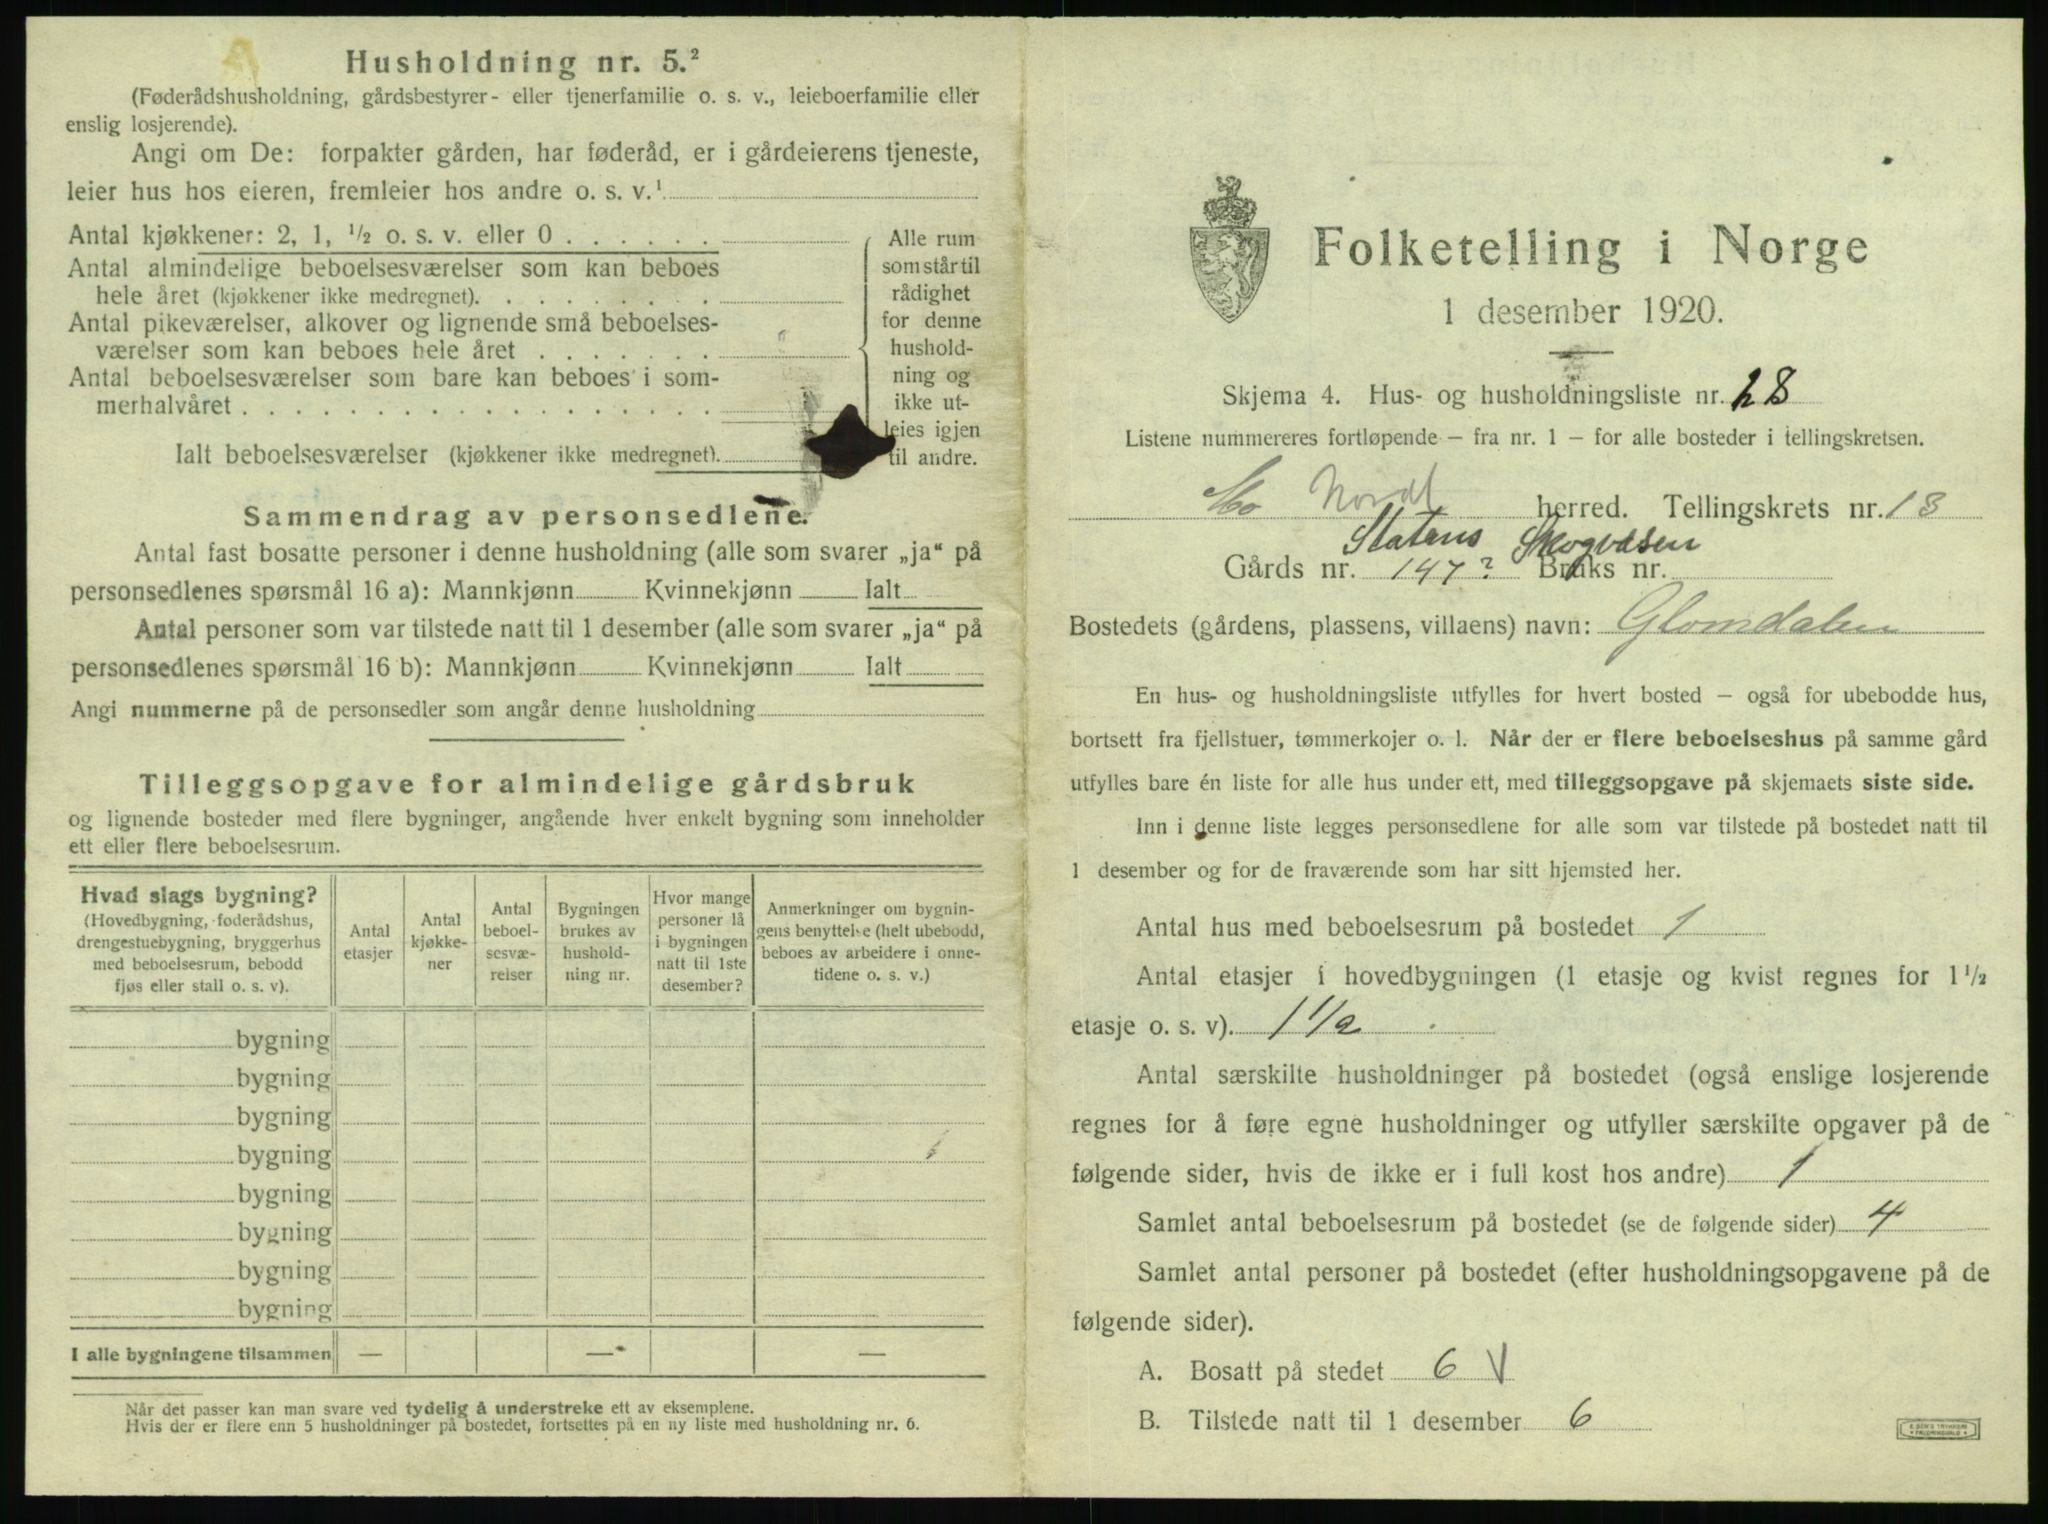 Husholdning nr. 5.²
(Føderådshusholdning, gårdsbestyrer- eller tjenerfamilie o. s. v., leieboerfamilie eller
enslig losjerende).
Angi om De: forpakter gården, har føderåd, er i gårdeierens tjeneste,
leier hus hos eieren, fremleier hos andre o. s. v.¹
Antal kjøkkener: 2, 1, ½ o. s. v. eller 0 . . . . . .
Antal almindelige beboelsesværelser som kan beboes
hele året (kjøkkener ikke medregnet). . . . . . . . .
Antal pikeværelser, alkover og lignende små beboelses-
værelser som kan beboes hele året . . . . . . .
Antal beboelsesværelser som bare kan beboes i som-
merhalvåret . . . . . . . . . . . . . . . . . .
Ialt beboelsesværelser (kjøkkener ikke medregnet).
Alle rum
som står til
rådighet
for denne
hushold-
ning og
ikke ut-
leies igjen
til andre.
Sammendrag av personsedlene.
Antal fast bosatte personer i denne husholdning (alle som svarer „ja“ på
personsedlenes spørsmål 16 a): Mannkjønn Kvinnekjønn Ialt
Antal personer som var tilstede natt til 1 desember (alle som svarer „ja“ på
personsedlenes spørsmål 16 b): Mannkjønn Kvinnekjønn Ialt
Angi nummerne på de personsedler som angår denne husholdning
Tilleggsopgave for almindelige gårdsbruk
og lignende bosteder med flere bygninger, angående hver enkelt bygning som inneholder
ett eller flere beboelsesrum.
Hvad slags bygning?
(Hovedbygning, føderådshus,
drengestuebygning, bryggerhus
med beboelsesrum, bebodd
fjøs eller stall o. s. v).
Antal
etasjer
Antal
kjøkke-
ner
Antal
beboel-
sesvæ-
relser
Bygningen
brukes av
hushold-
ning nr.
Hvor mange
personer lå
i bygningen
natt til 1ste
desember?
Anmerkninger om bygnin-
gens benyttelse (helt ubebodd,
beboes av arbeidere i onne-
tidene o. s. v.)
bygning
bygning
bygning
bygning
bygning
bygning
bygning
bygning
I alle bygningene tilsammen — — —
Når det passer kan man svare ved tydelig å understreke ett av eksemplene.
Hvis der er flere enn 5 husholdninger på bostedet, fortsettes på en ny liste med husholdning nr. 6.
Folketelling i Norge
1 desember 1920.
Skjema 4. Hus- og husholdningsliste nr. 28
Listene nummereres fortløpende – fra nr. 1 – for alle bosteder i tellingskretsen.
Mo Nord herred. Tellingskrets nr. 13
Statens Skogvæsen
Gårds nr. 147? Bruks nr.
Bostedets (gårdens, plassens, villaens) navn: Glomdalen
En hus- og husholdningsliste utfylles for hvert bosted – også for ubebodde hus,
bortsett fra fjellstuer, tømmerkojer o. l. Når der er flere beboelseshus på samme gård
utfylles bare én liste for alle hus under ett, med tilleggsopgave på skjemaets siste side.
Inn i denne liste legges personsedlene for alle som var tilstede på bostedet natt til
1 desember og for de fraværende som har sitt hjemsted her.
Antal hus med beboelsesrum på bostedet 1
Antal etasjer i hovedbygningen (1 etasje og kvist regnes for 1½
etasje o. s. v). 1 1/2
Antal særskilte husholdninger på bostedet (også enslige losjerende
regnes for å føre egne husholdninger og utfyller særskilte opgaver på de
følgende sider, hvis de ikke er i full kost hos andre) 1
Samlet antal beboelsesrum på bostedet (se de følgende sider) 4
Samlet antal personer på bostedet (efter husholdningsopgavene på de
følgende sider).
A. Bosatt på stedet 6 V
B. Tilstede natt til 1 desember 6